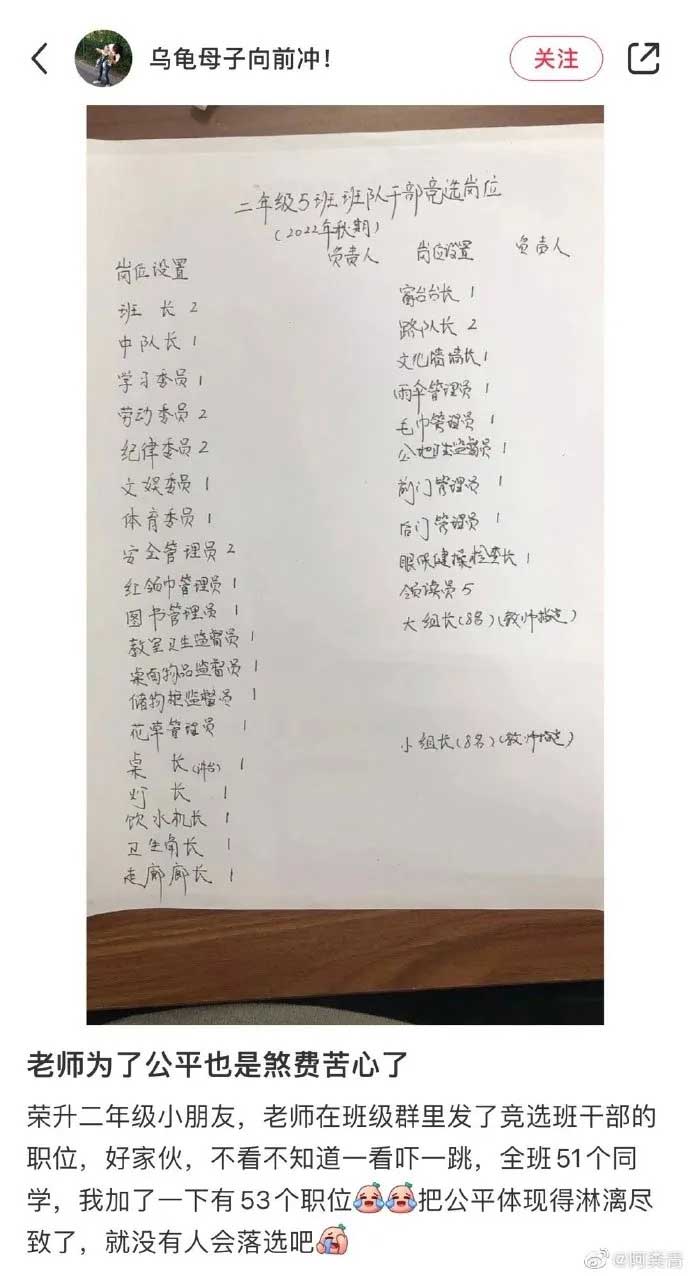 乌龟母子向前冲！
关注
二年级5班班队干部竞选岗位
(2022年秋期)
岗位设置 负责人
班 长 2
中队长 1
学习委员 1
劳动委员 2
纪律委员 2
文娱委员 1
体育委员 1
安全管理员 2
红领巾管理员 1
图书管理员 1
教室卫生监督员 1
桌面物品监督员 1
储物柜监督员 1
花草管理员 1
桌 长(讲台) 1
灯 长 1
饮水机长 1
卫生角长 1
走廊廊长 1
岗位设置 负责人
窗台台长 1
路队长 2
文化墙墙长 1
雨伞管理员 1
毛巾管理员 1
公地卫生监督员 1
前门管理员 1
后门管理员 1
眼保健操检查长 1
领读员 5
大组长(8名)(教师指定)
小组长(8名)(教师指定)
老师为了公平也是煞费苦心了
荣升二年级小朋友，老师在班级群里发了竞选班干部的
职位，好家伙，不看不知道一看吓一跳，全班51个同
学，我加了一下有53个职位😂😂把公平体现得淋漓尽
致了，就没有人会落选吧
@阿粪青